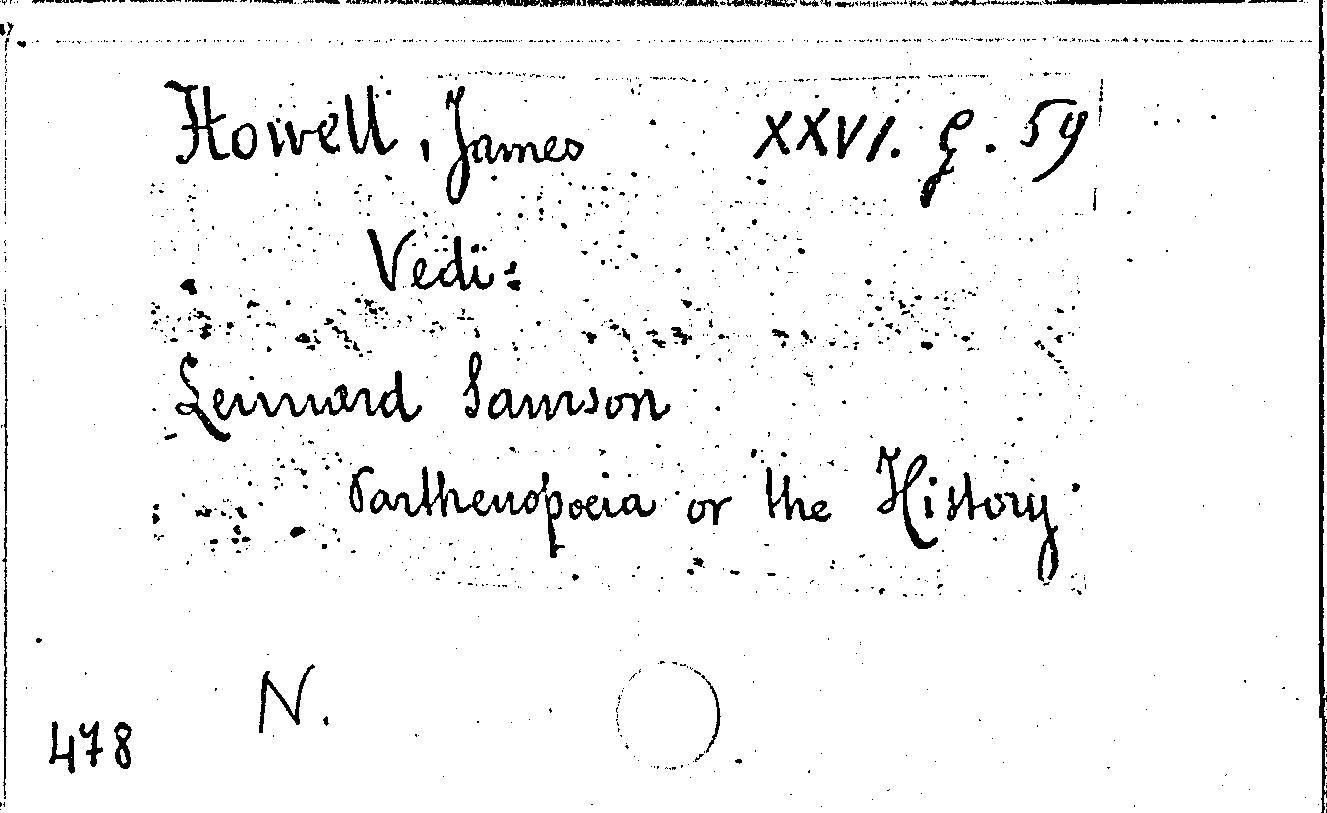 Howell, James XXVI. G. 59
Vedi:
Lennard Samson
Parthenopoeia or the History
N.
478